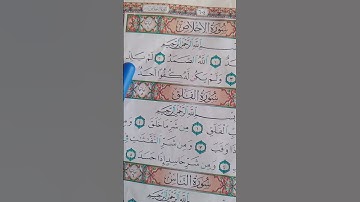 سورة الإخلاص
بسم الله الرحمن الرحيم
الله الصمد لم يلد
ولم يكن له كفوا أحد
سورة الفلق
بسم الله الرحمن الرحيم
الفلق من شر ما خلق
وقب ومن شر النفثت في
ومن شر حاسد إذا حسد
سورة الناس
بسم الله الرحمن الرحيم